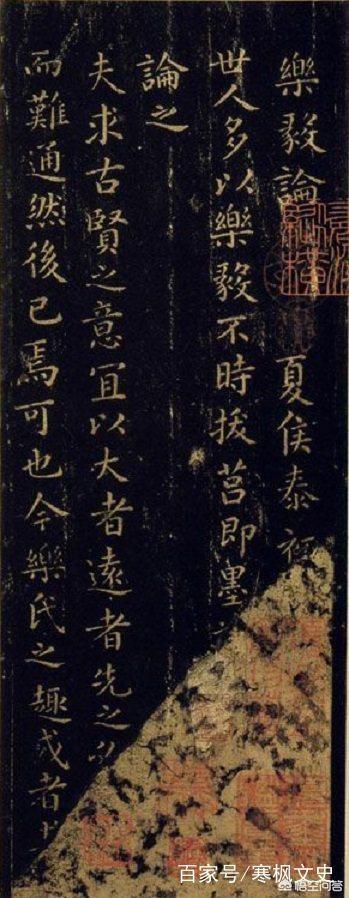 樂毅論 夏侯泰
世人多以樂毅不時拔莒即墨
論之
夫求古賢之意宜以大者遠者先之
而難通然後已焉可也今樂氏之趣或者
百家号/寒枫文史
悟空问答